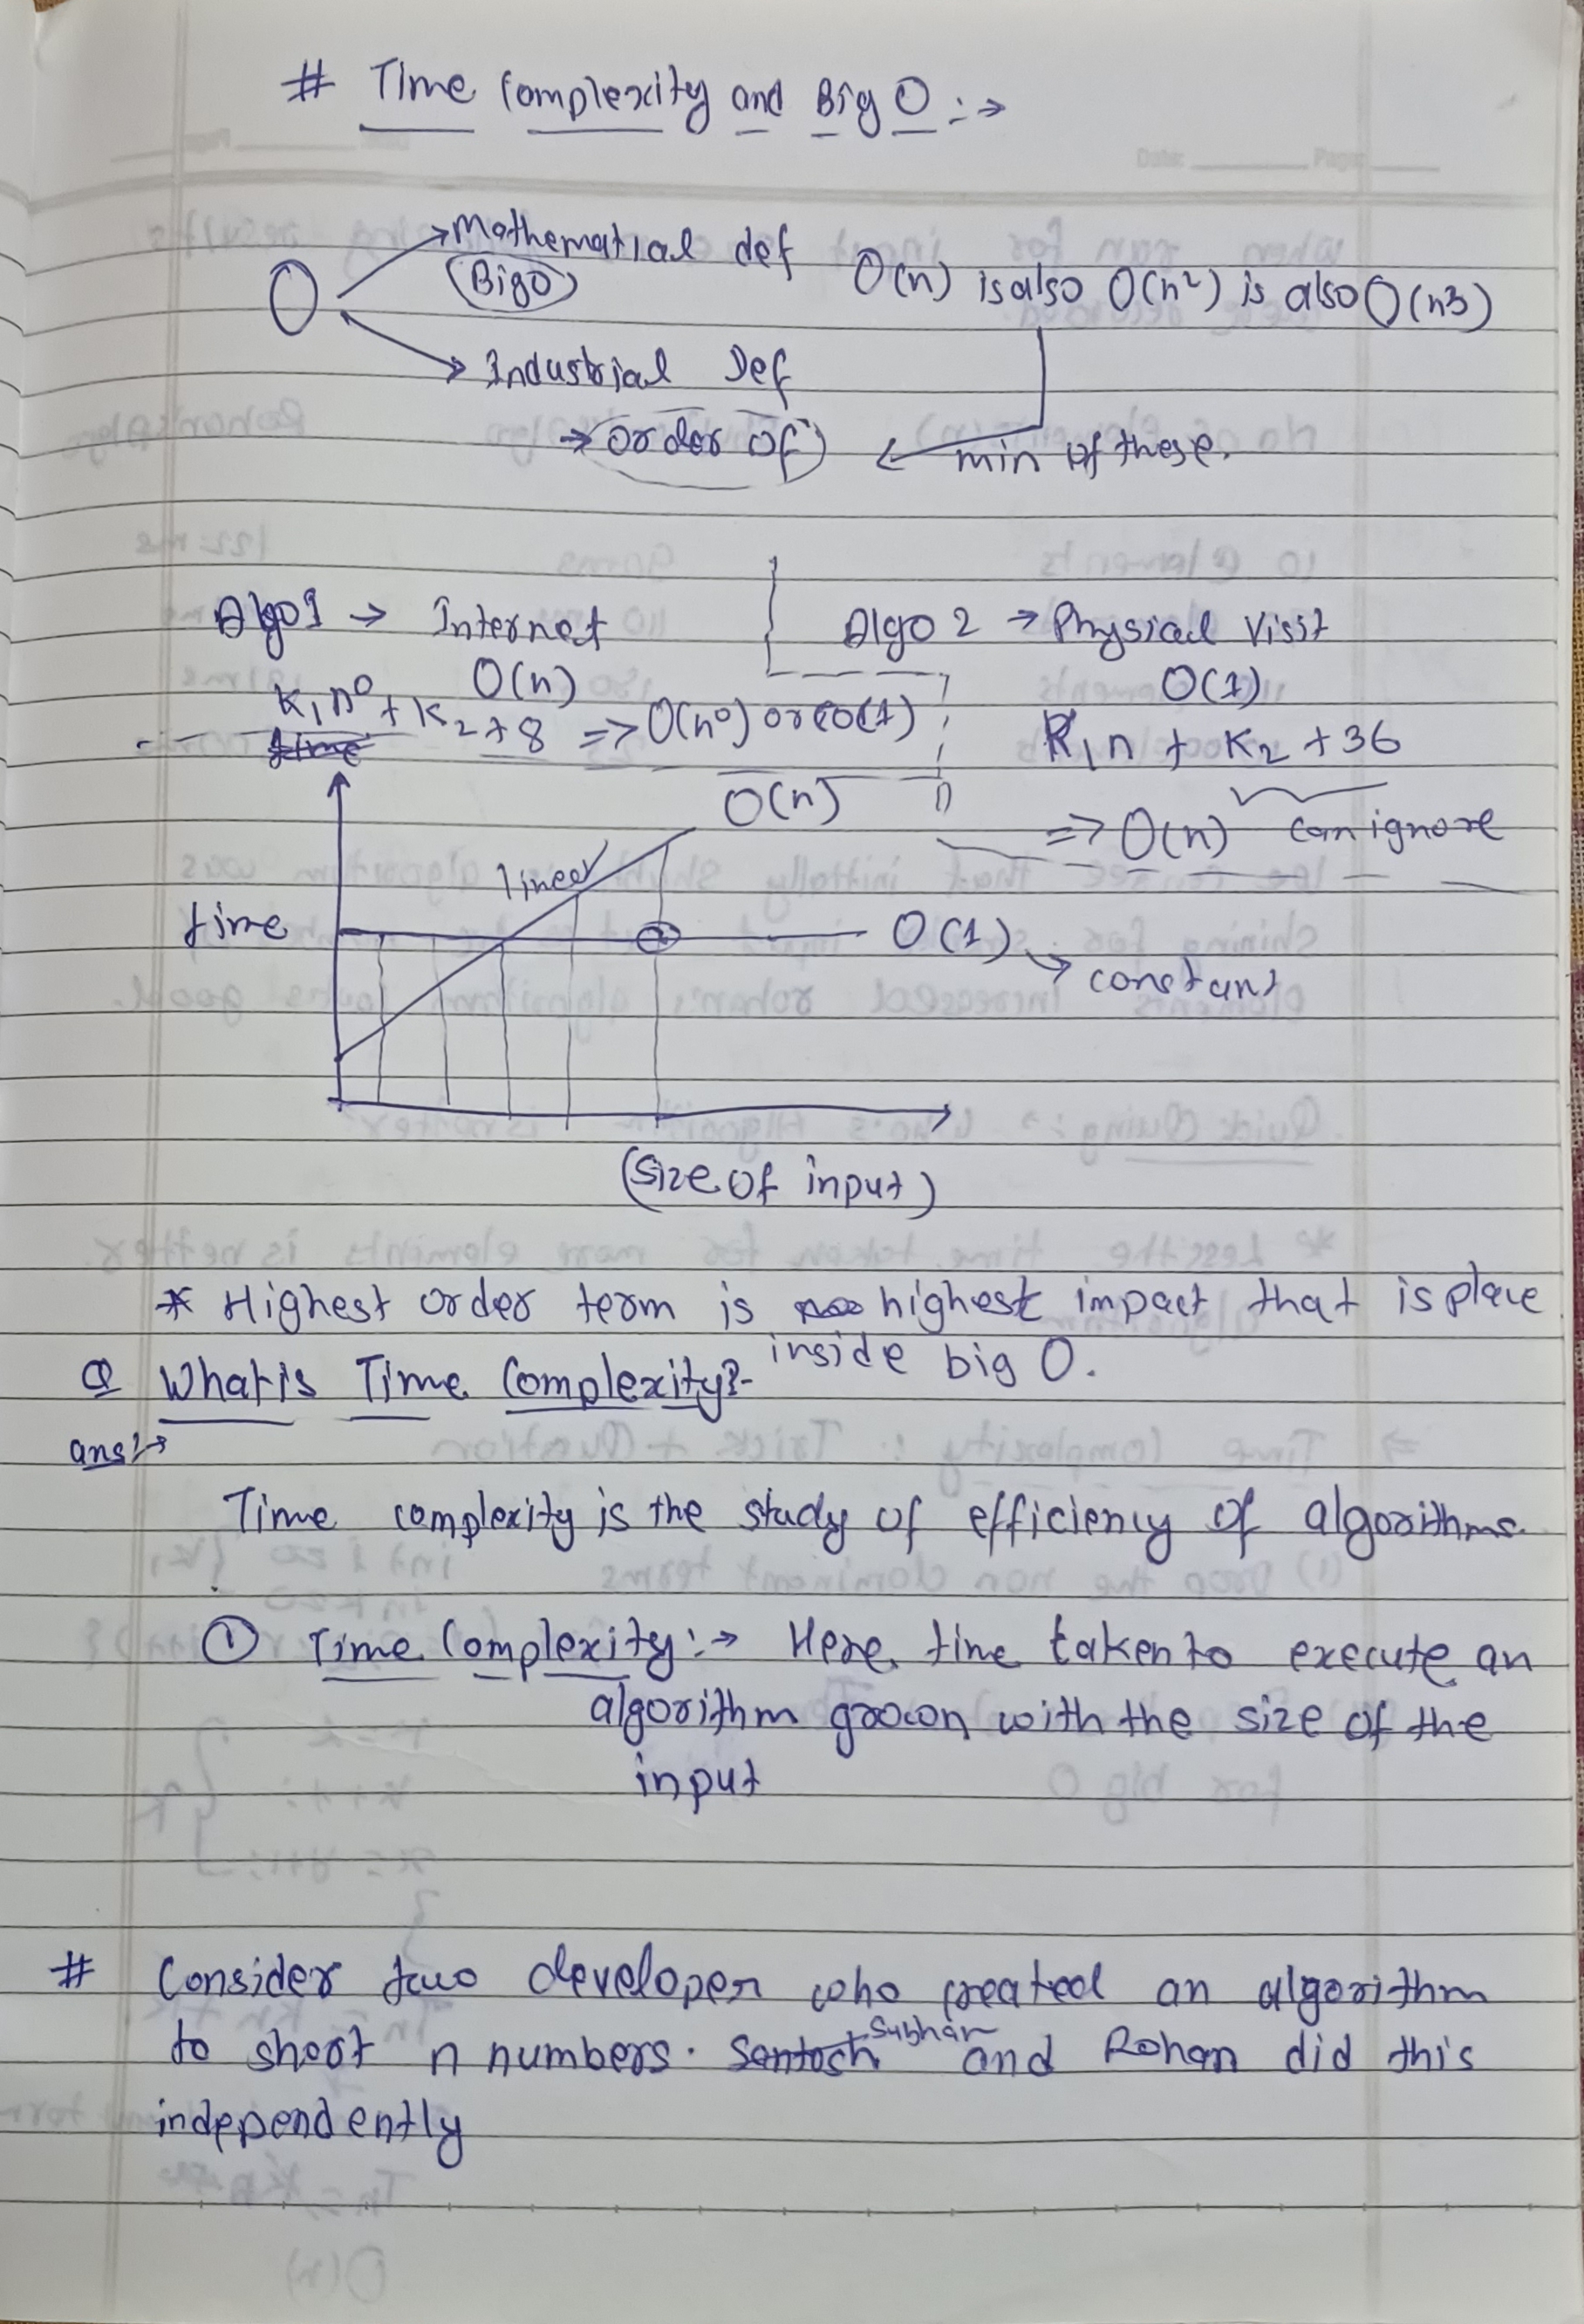 # Time Complexity and Big O :→
Mathematial def
(Big O)
O(n) is also O(n²) is also O(n3)
O
Industrial Def
→ order of
min of these.
Algo 1 → Internet
O(n)
K₁n⁰ + K₂ + 8 => O(n⁰) or O(1)
time
Algo 2 → Physical Visit
O(1)
K₁n + K₂ + 36
=> O(n) can ignore
O(n)
linear
time
O(1)
→ constant
(size of input)
* Highest order term is highest impact that is place
inside big O.
Q What is Time Complexity?-
ans:→
Time complexity is the study of efficiency of algorithms.
① Time Complexity:→ Here, time taken to execute an
algorithm growon with the size of the
input
# Consider two developer who created an algorithm
to short n numbers. Santosh Subhan and Rohan did this
independently